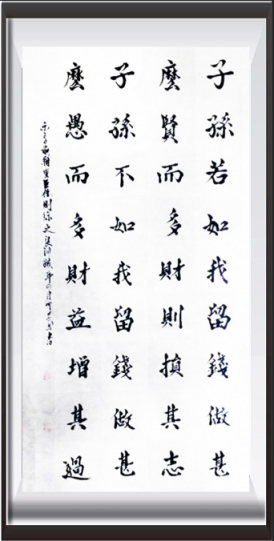 子孫若如我留錢做甚
麼賢而多財則損其志
子孫不如我留錢做甚
麼愚而多財益增其過